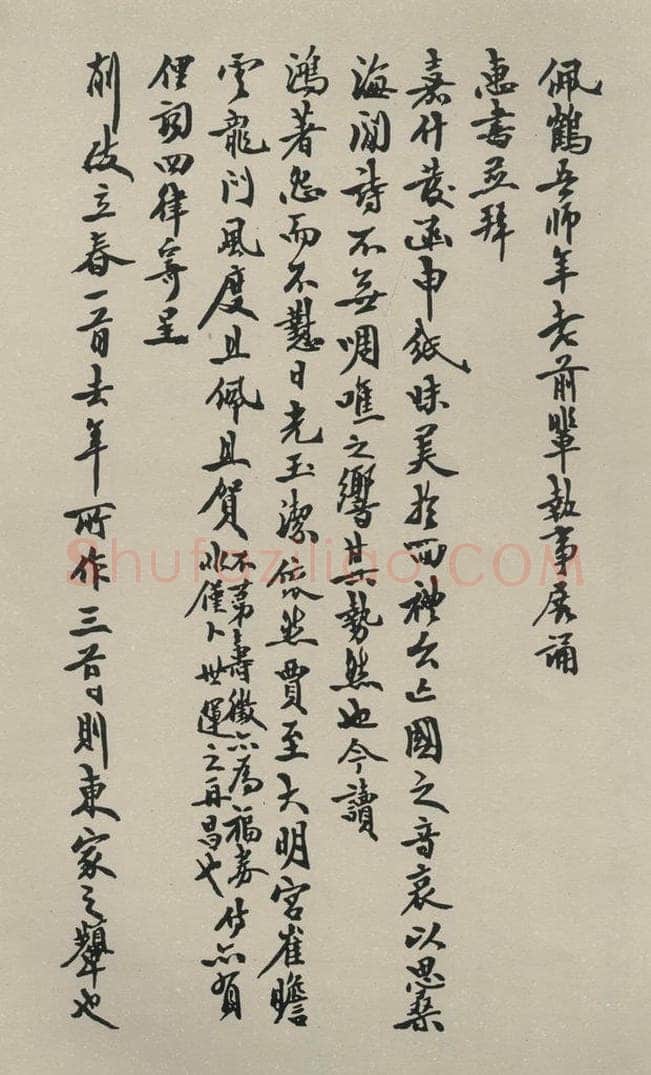 佩鶴吾師年老前輩執事展誦
惠書並拜
嘉什發函申紙味美於西禮亡國之音哀以思桑
海間詩不無啁噍之響其勢然也今讀
鴻著怨而不懟日光玉潔依然賈至大明宮崔瞻
雲龍門風度且佩且賀不第壽徵亦爲福券
水僅卜世運之再昌也
侍亦有
俚詞四律寄呈
削改立春一首去年所作三首則東家之顰也
Shufaziliao.COM